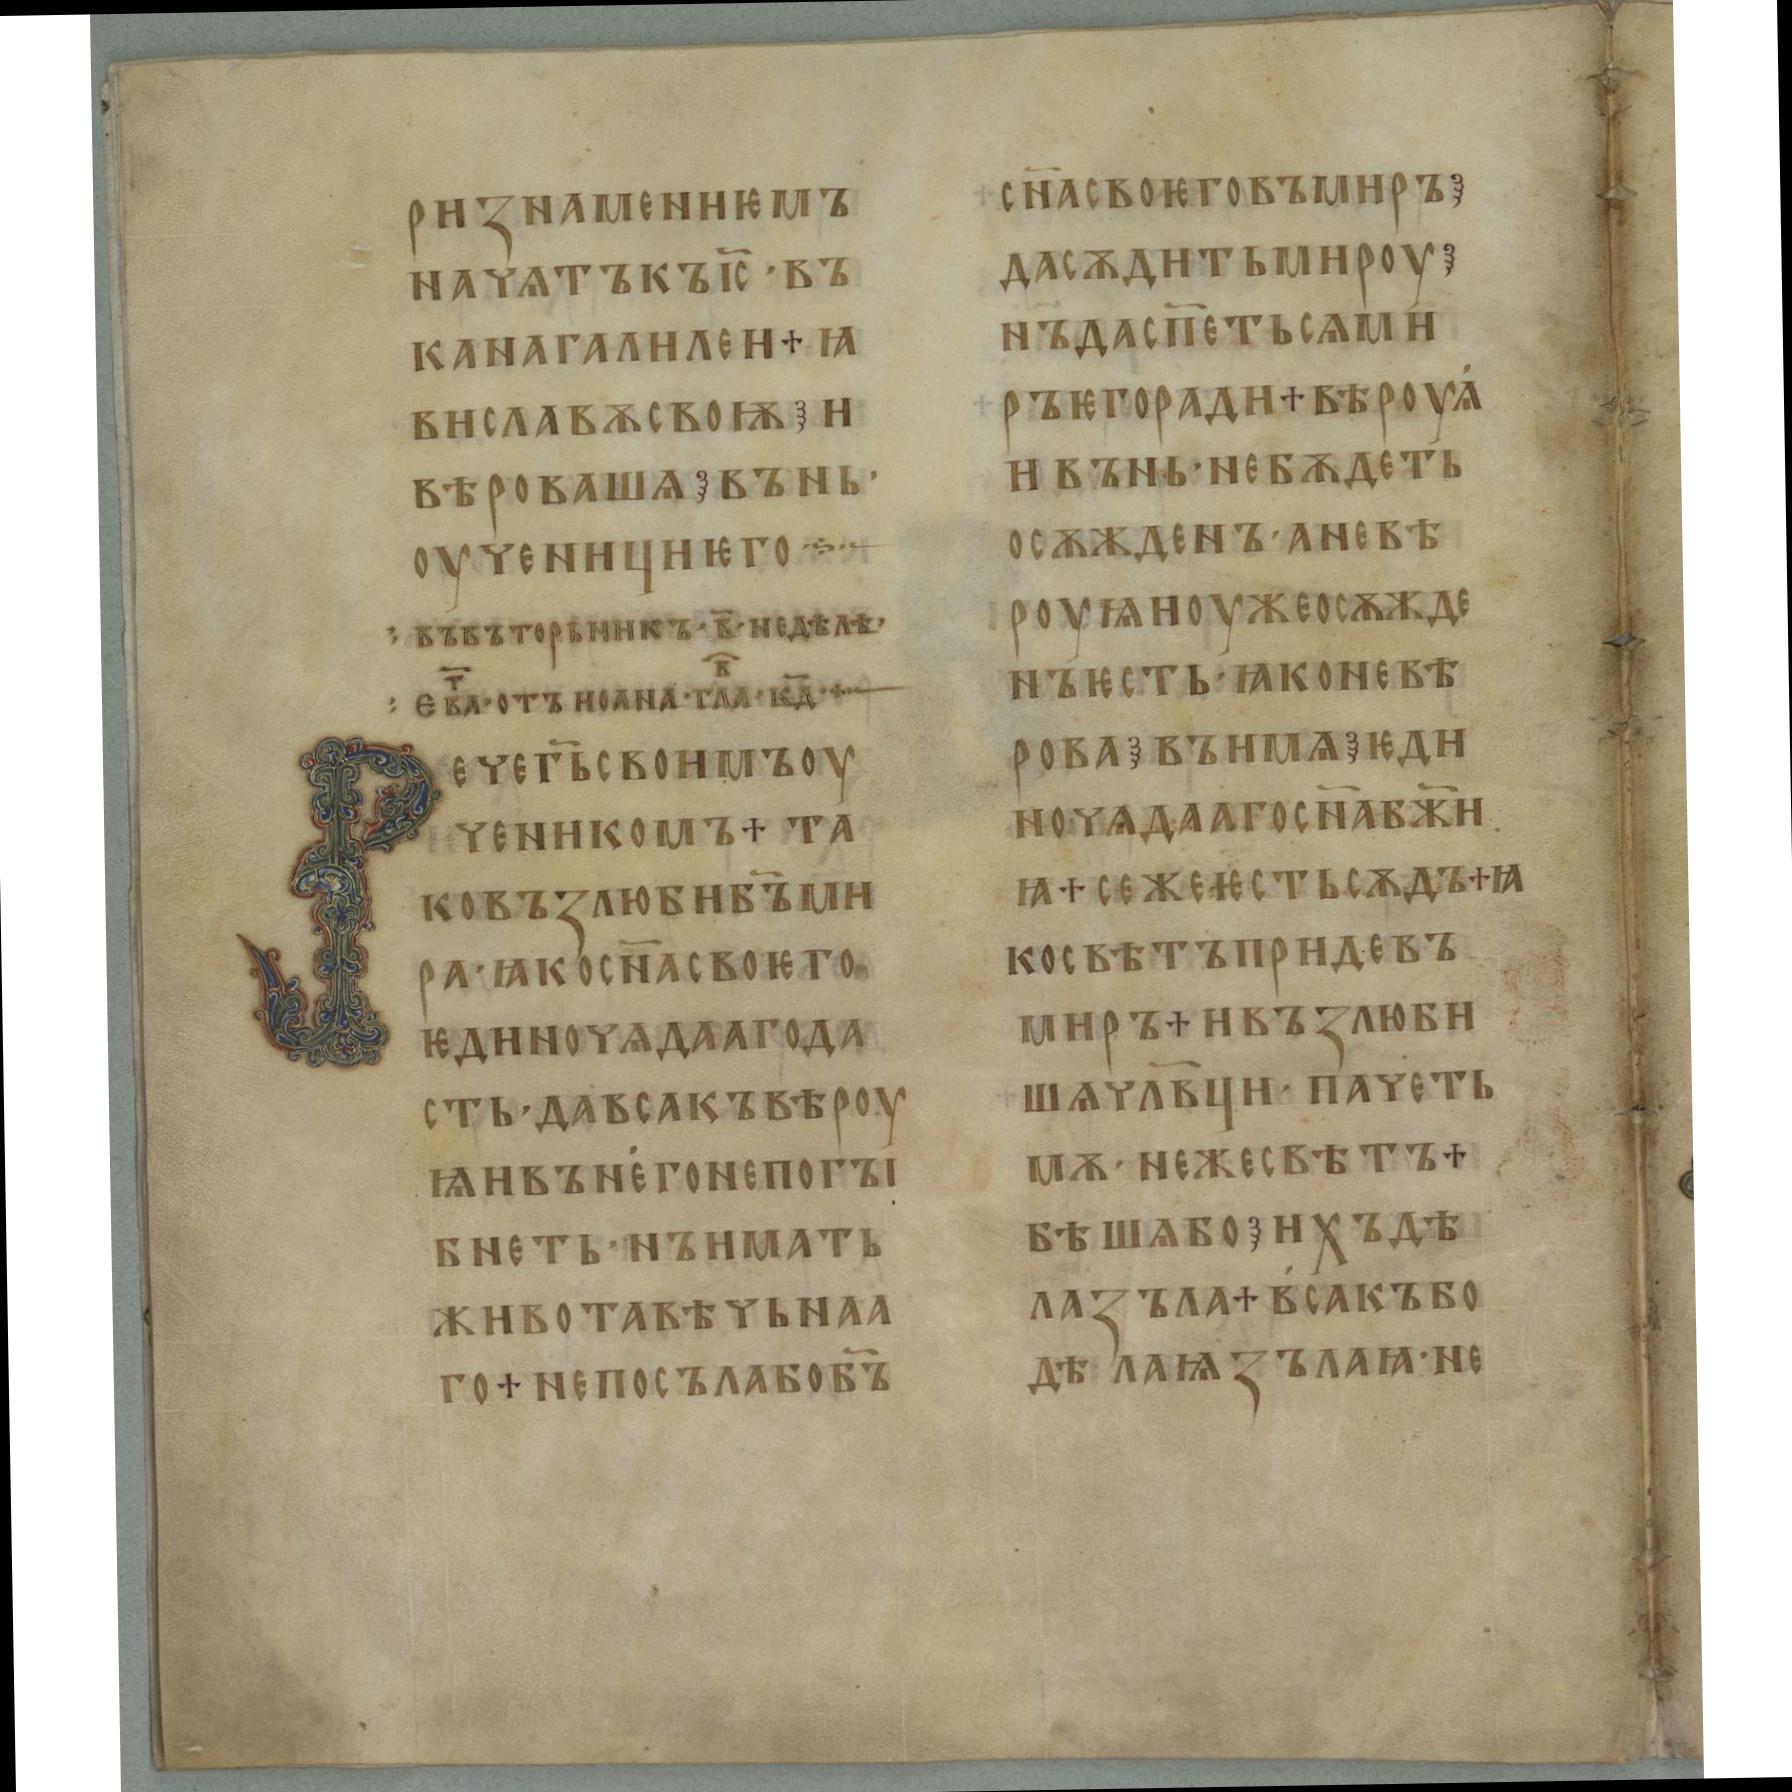 рнꙁнаменнѥмъ
наүѧтъкъі҃с·въ
канагалнлен+ꙗ
внславѫсвоѭ ꙁ н
вѣровашѧ ꙁ вънь·
оуүеннцнѥго
въвъторьннкъ·в҃·недѣлѣ·
ев҃а·отъноана·гл҃а·к҃д·
реүег҃ьсвонмъоу
үеннкомъ+та
ковъꙁлюбнб҃ъмн
ра·ꙗкос҃насвоѥго
ѥднноүѧдаагода
сть·давсакъвѣроу
ѩнвънегонепогъі
бнеть·нънмать
жнвотавѣүьнаа
го+непосълабоб҃ъ
с҃насвоѥговъмнръ ꙁ
дасѫднтьмнроу ꙁ
нъдасп҃етьсѧмн
ръѥгорадн+вѣроуѧ
нвънь·небѫдеть
осѫжденъ·аневѣ
роуѩноужеосѫжде
нъѥсть·ꙗконевѣ
рова ꙁ вънмѧ ꙁ ѥдн
ноүѧдаагос҃наб҃жн
ꙗ+сежеѥстьсѫдъ+ꙗ
косвѣтъпрндевъ
мнръ+нвъꙁлюбн
шѧүл҃вцн·паүеть
мѫ·нежесвѣтъ+
бѣшѧбо ꙁ нхъдѣ
лаꙁъла+всакъбо
дѣлаѩꙁълаꙗ·не